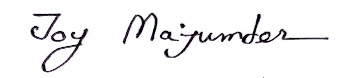 Joy Maijumder